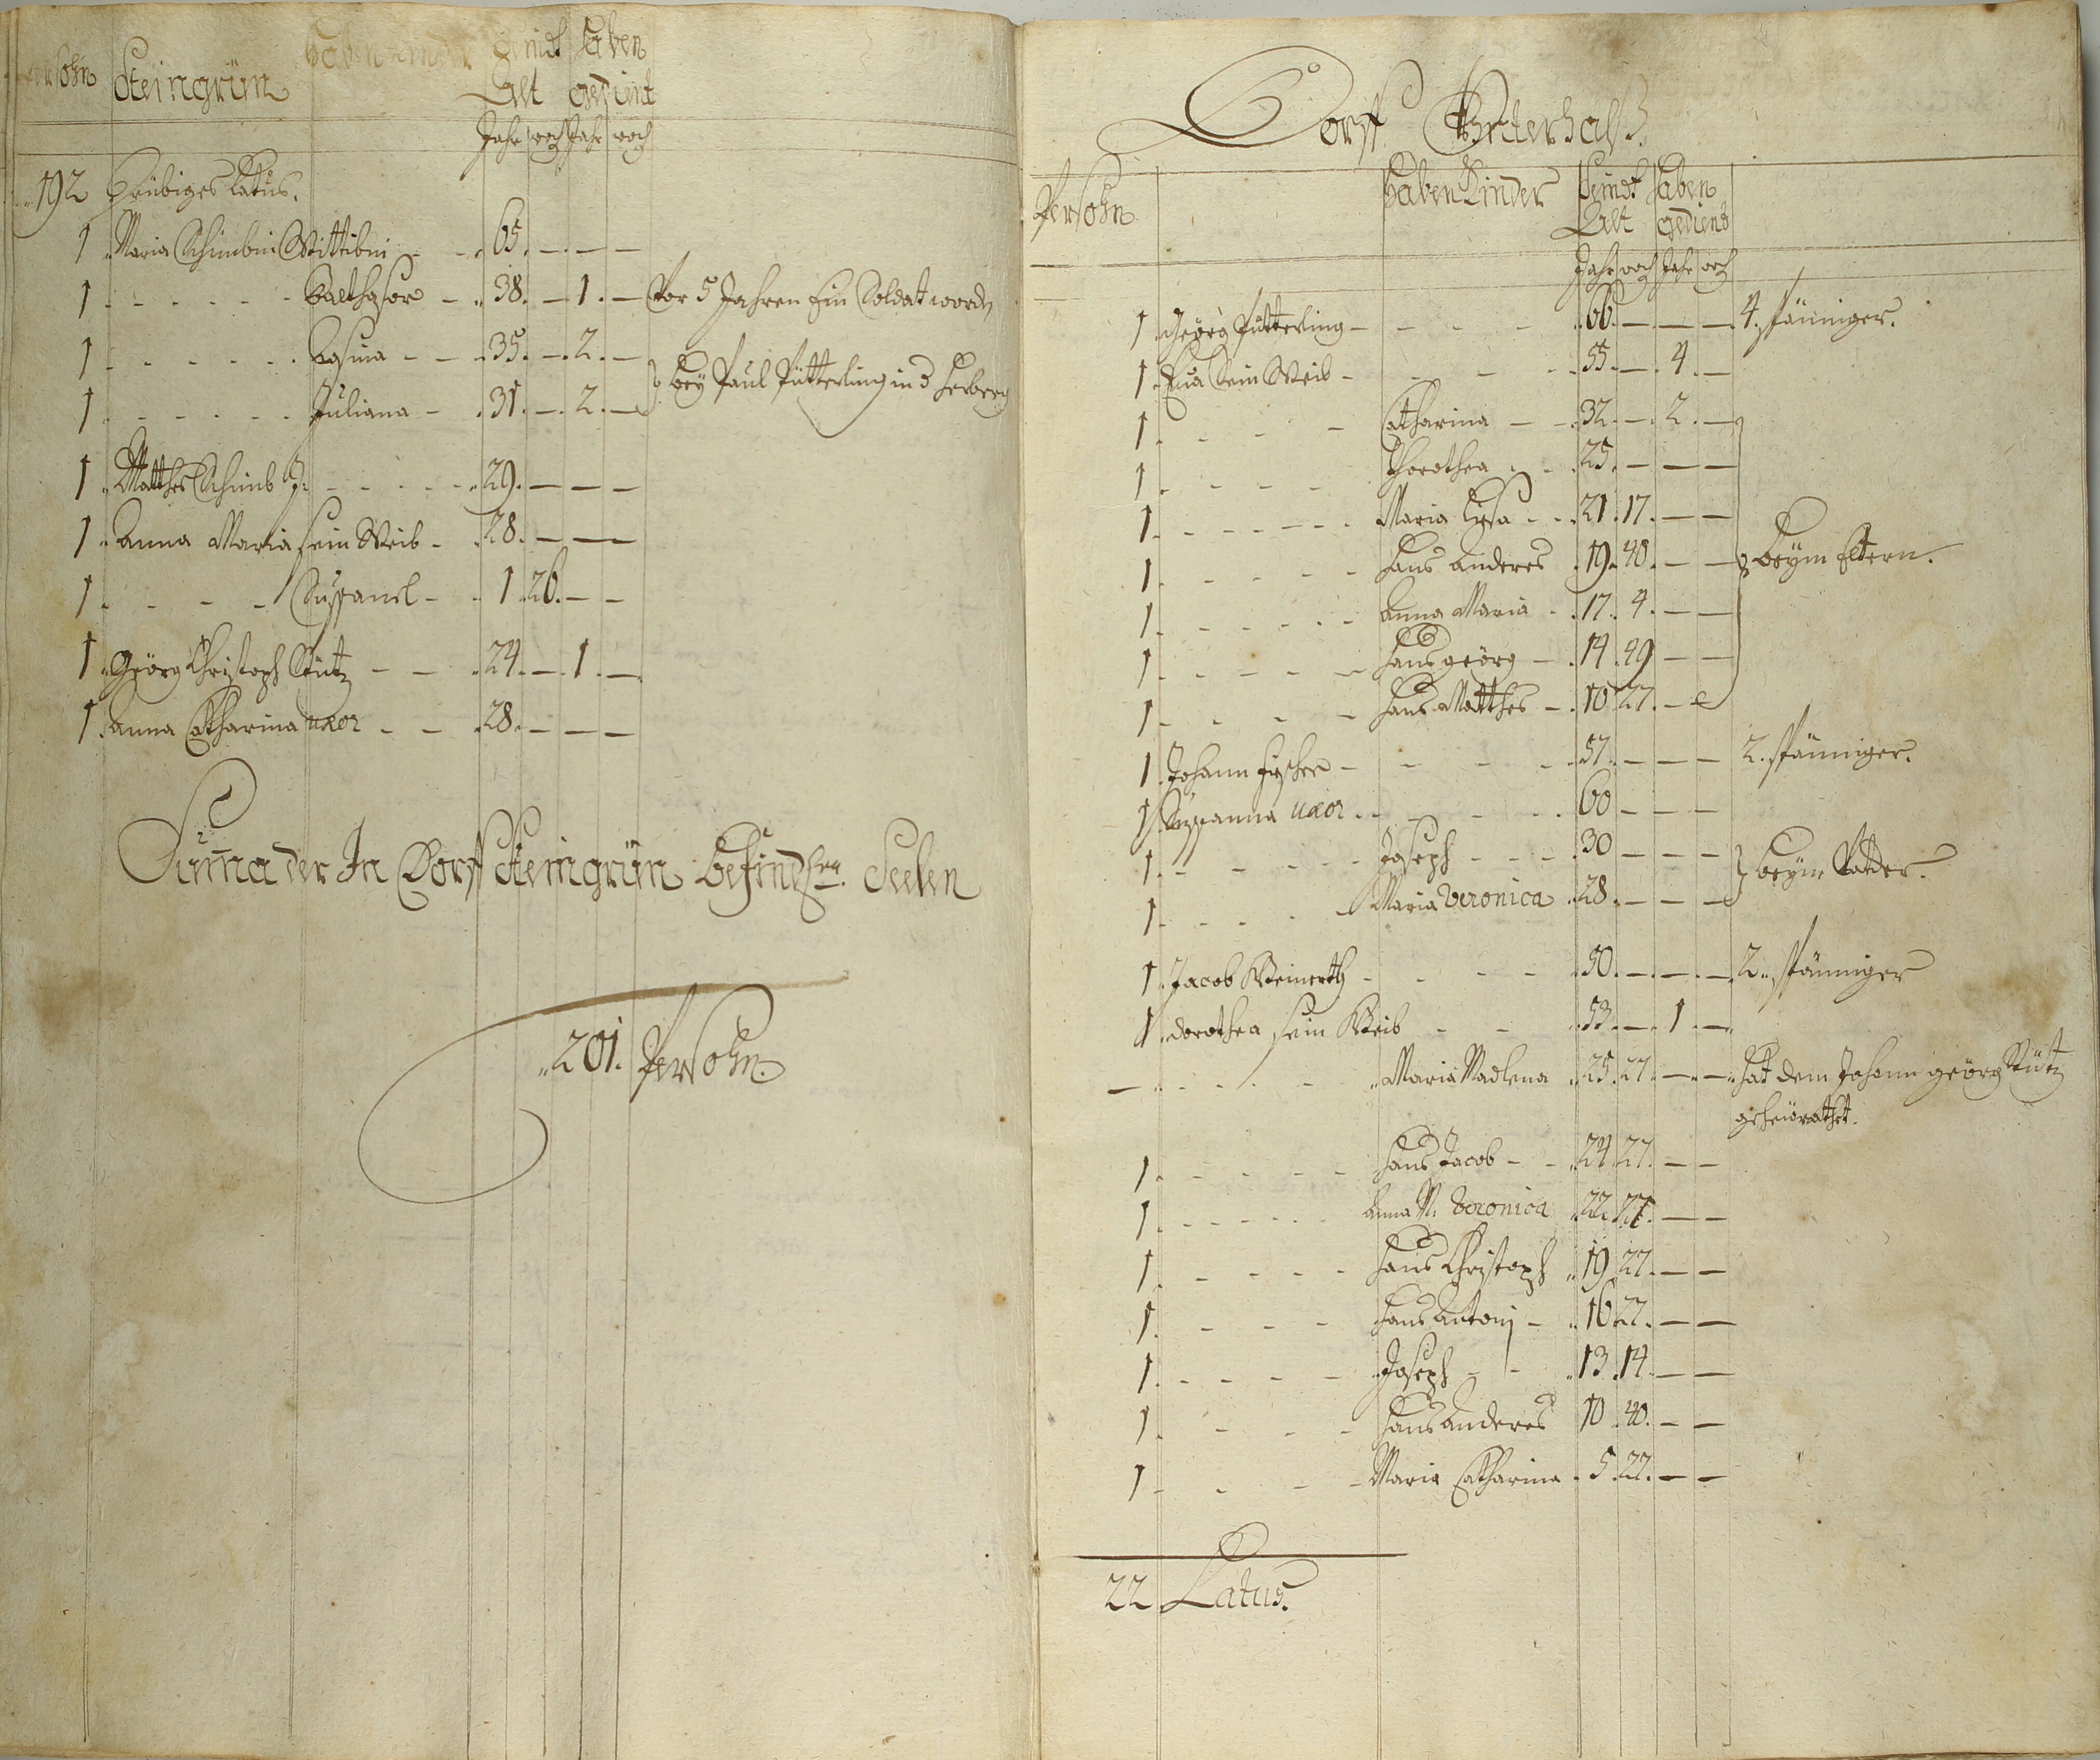 Persohn Steingrün Haben Kinder Seindt Alt Haben gedient
Jahr woch Jahr woch
192 Herübiges Latus.
1 Maria Schimbin Wittibin - - 65. - - -
1 - - - - - Balthasar - 38. - 1. - Vor 5 Jahren Ein Soldat wordn
1 - - - - - Rosina - - 35. - 2. -
1 - - - - - Juliana - 31. - 2. - bey Paul Pütterling in d Herberg
1 Matthes Schimb J: - - - - 29. - - -
1 Anna Maria sein Weib - 28. - - -
1 - - - - Sußanel - - 1 26. - -
1 Geörg Christoph Stütz - - 24. - 1. -
1 Anna Catharina uxor - - 28. - - -
Suma der In Dorff Steingrün befindl. Seelen
201. Persohn.
Dorff Unterhalß.
Persohn Haben Kinder Seindt Alt Haben gedient
Jahr woch Jahr woch
1 Geörg Pütterling - - - - 66. - - - 4. spänniger.
1 Eva Sein Weib - - - - 55. - 4. -
1 - - - - Catharina - - 32. - 2. -
1 - - - - Dorothea - - 25. - - -
1 - - - - Maria Lisa - - 21. 17. - -
1 - - - - Hans Anderes 19. 40. - - beÿm Eltern.
1 - - - - Anna Maria - 17. 4. - -
1 - - - - Hans geörg - 14. 49 - -
1 - - - - Hans Matthes - 10 27. - -
1 Johann Fischer - - - - 57. - - - 2. spänniger.
1 Sußanna uxor - - - - 60 - - -
1 - - - - Joseph - - - 30 - - -
1 - - - - Maria Veronica 28. - - - beÿm Vatter.
1 Jacob Weinerth - - - - 50. - - - 2. spänniger
1 dorothea sein Weib - - 53. - 1 -
- - - - - Maria Madlena 25. 27. - - hat dem Johann geörg Stütz
geheürathet.
1 - - - - Hans Jacob - - 24 27. - -
1 - - - - Anna M. Veronica 22. 27. - -
1 - - - - Hans Christoph 19. 27. - -
1 - - - - Hans Antonj - 16 27. - -
1 - - - - Joseph - - 13. 14 - -
1 - - - - Hans Anderes 10. 40. - -
1 - - - - Maria Catharina - 5. 27. - -
22 Latus.